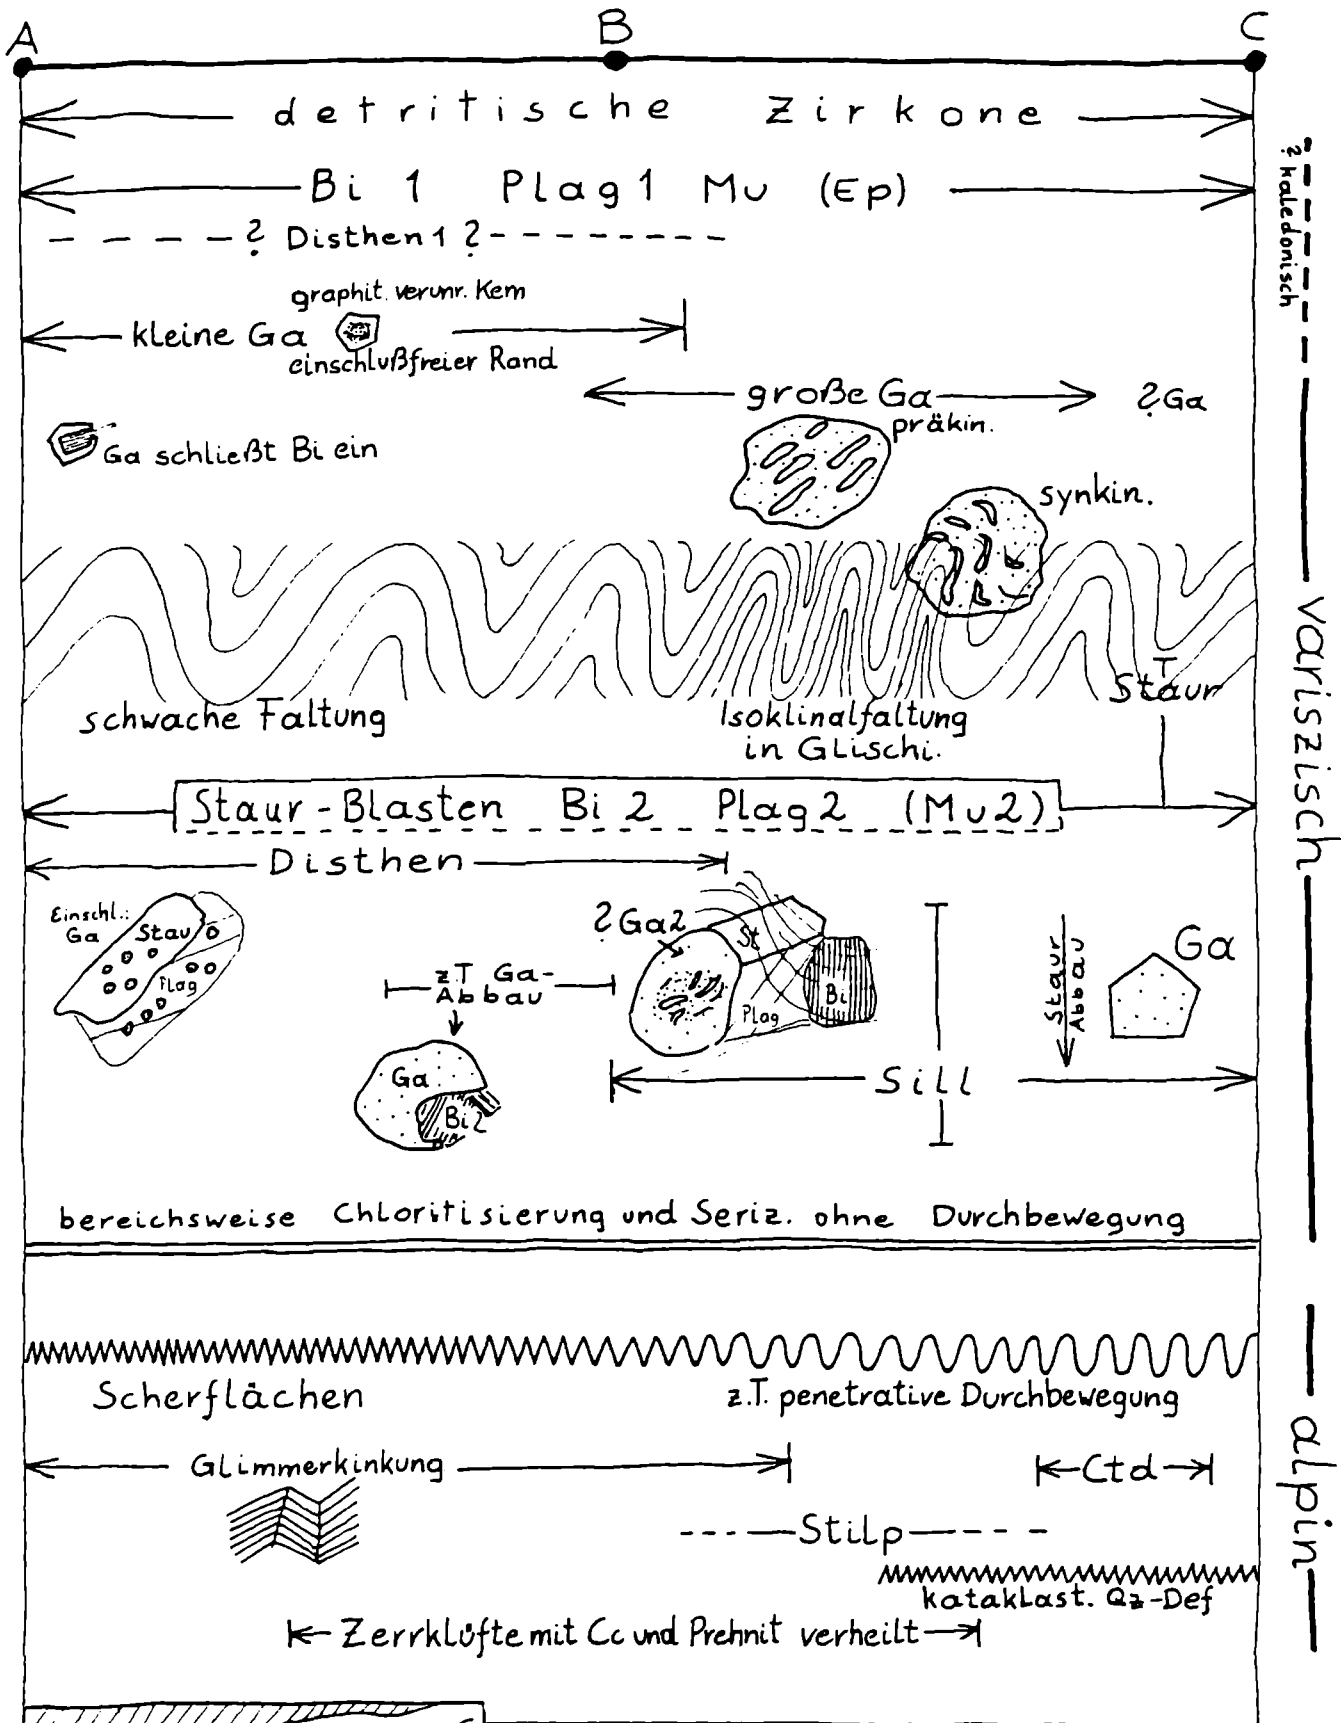 A B C
detritische Zirkone
Bi 1 Plag1 Mu (Ep)
? Disthen 1 ?
graphit. verunr. Kern
kleine Ga
einschlußfreier Rand
große Ga
? Ga
präkin.
Ga schließt Bi ein
synkin.
Staur
schwache Faltung
Isoklinalfaltung
in Glischi.
Staur-Blasten Bi 2 Plag 2 (Mu 2)
Disthen
Einschl.:
Ga
Stau
Plag
? Ga2
St
Bi
Plag
z.T Ga-
Abbau
Ga
Bi2
Staur
Abbau
Ga
Sill
bereichsweise Chloritisierung und Seriz. ohne Durchbewegung
Scherflächen
z.T. penetrative Durchbewegung
Glimmerkinkung
Ctd
Stilp
kataklast. Qz-Def
Zerrklüfte mit Cc und Prehnit verheilt
? kaledonisch
variszisch
alpin